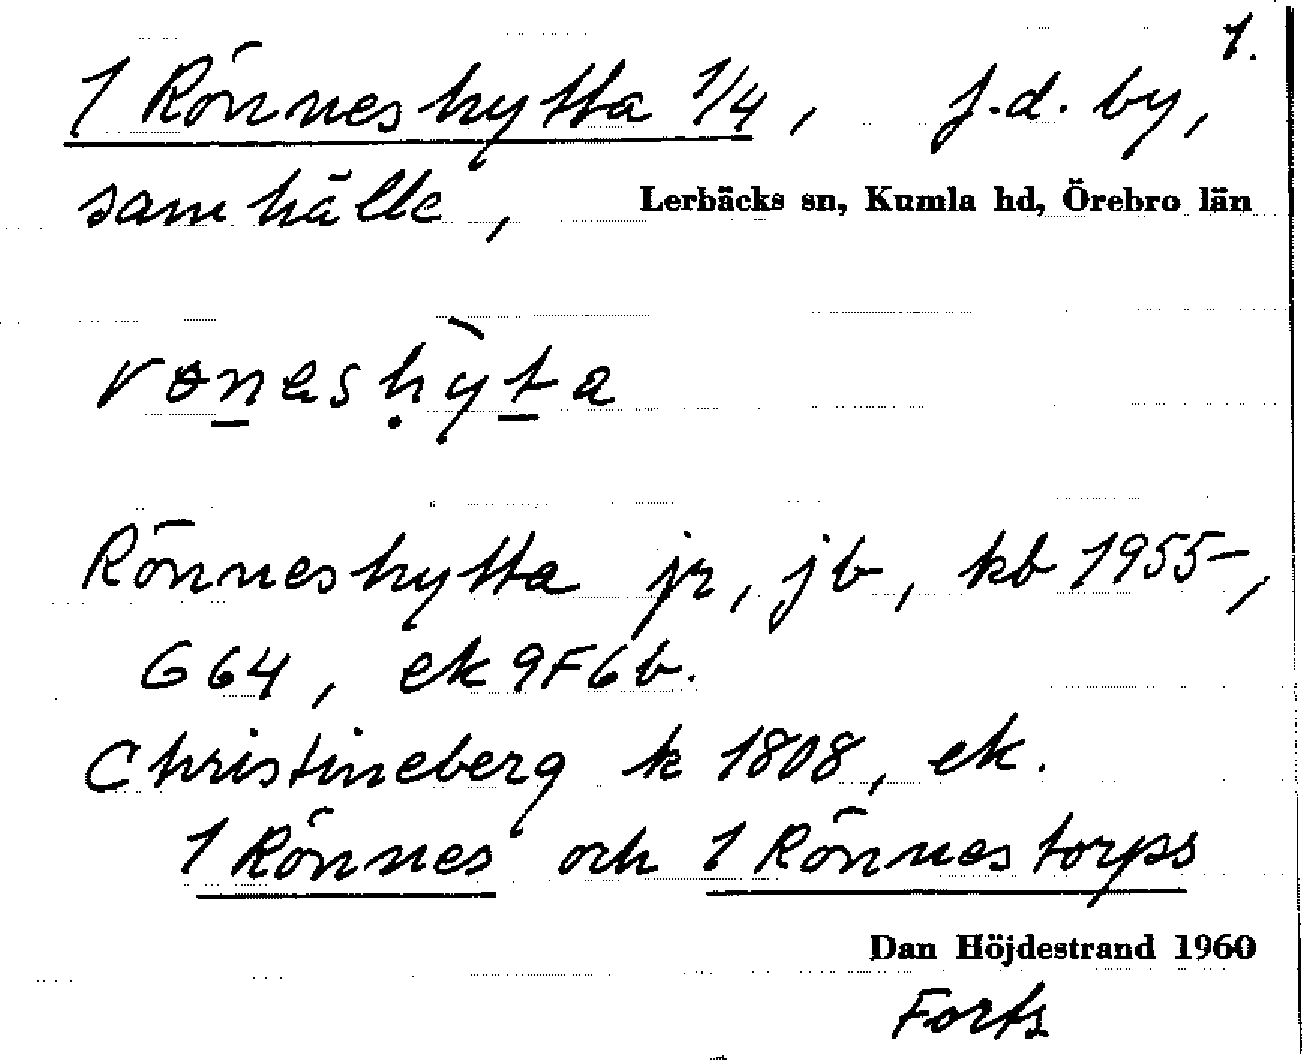 1.
1 Rönneshytta 1/4, f.d. by,
samhälle, Lerbäcks sn, Kumla hd, Örebro län
rөneshy̓ta
Rönneshytta jr, jb, kb 1955–,
G64, ek 9F6b.
Christineberg k 1808, ek.
1 Rönnes och 1 Rönnestorps
Dan Höjdestrand 1960
Forts